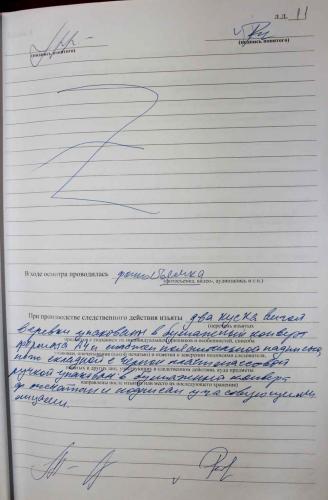 л.д. 11
(подпись понятого) (подпись понятого)
В ходе осмотра проводилась фотосъемка
(фотосъемка, видео-, аудиозапись и т.п.)
При производстве следственного действия изъяты два куска витой
(перечень изъятых
веревки упакованы в бумажный конверт
предметов с указанием их индивидуальных признаков и особенностей, способы
формата А4 и снабжен пояснительной надписью,
упаковки, опечатывания (какой печатью) и отметка о заверении подписями следователя,
нож складной с черной пластмассовой
понятых и других лиц, участвующих в следственном действии, куда предметы
ручкой упакован в бумажный конверт
направлены после изъятия или место их последующего хранения)
опечатан и подписан участвующими
лицами.